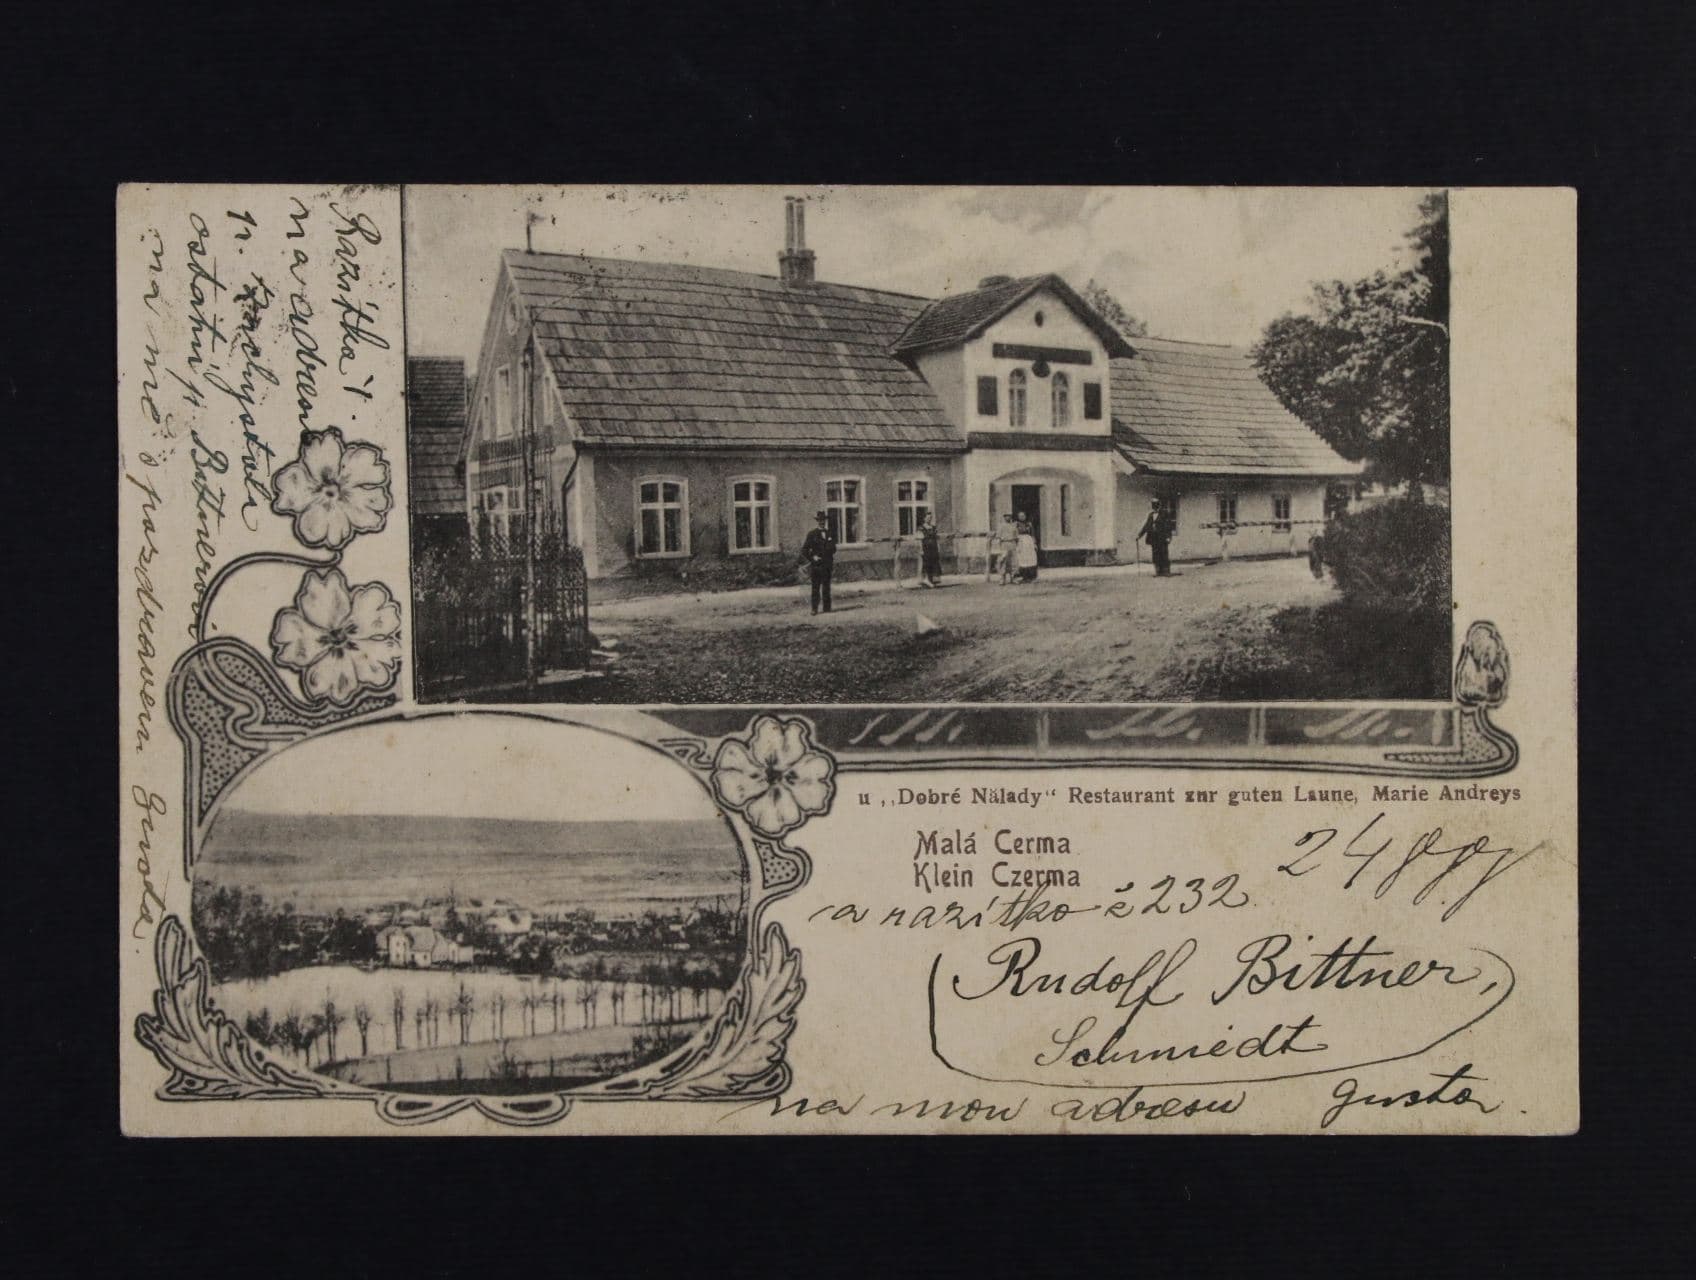 Razítka 1.
na adresu
p. Zachystala
ostatní p. Bittnerovi
na mně s pozdravem Gusta.
u ,,Dobré Nälady“ Restaurant znr guten Laune, Marie Andreys
Malá Cerma
Klein Czerma
a razítko č 232
Rudolf Bittner,
Schmiedt
na mou adresu Gusta.